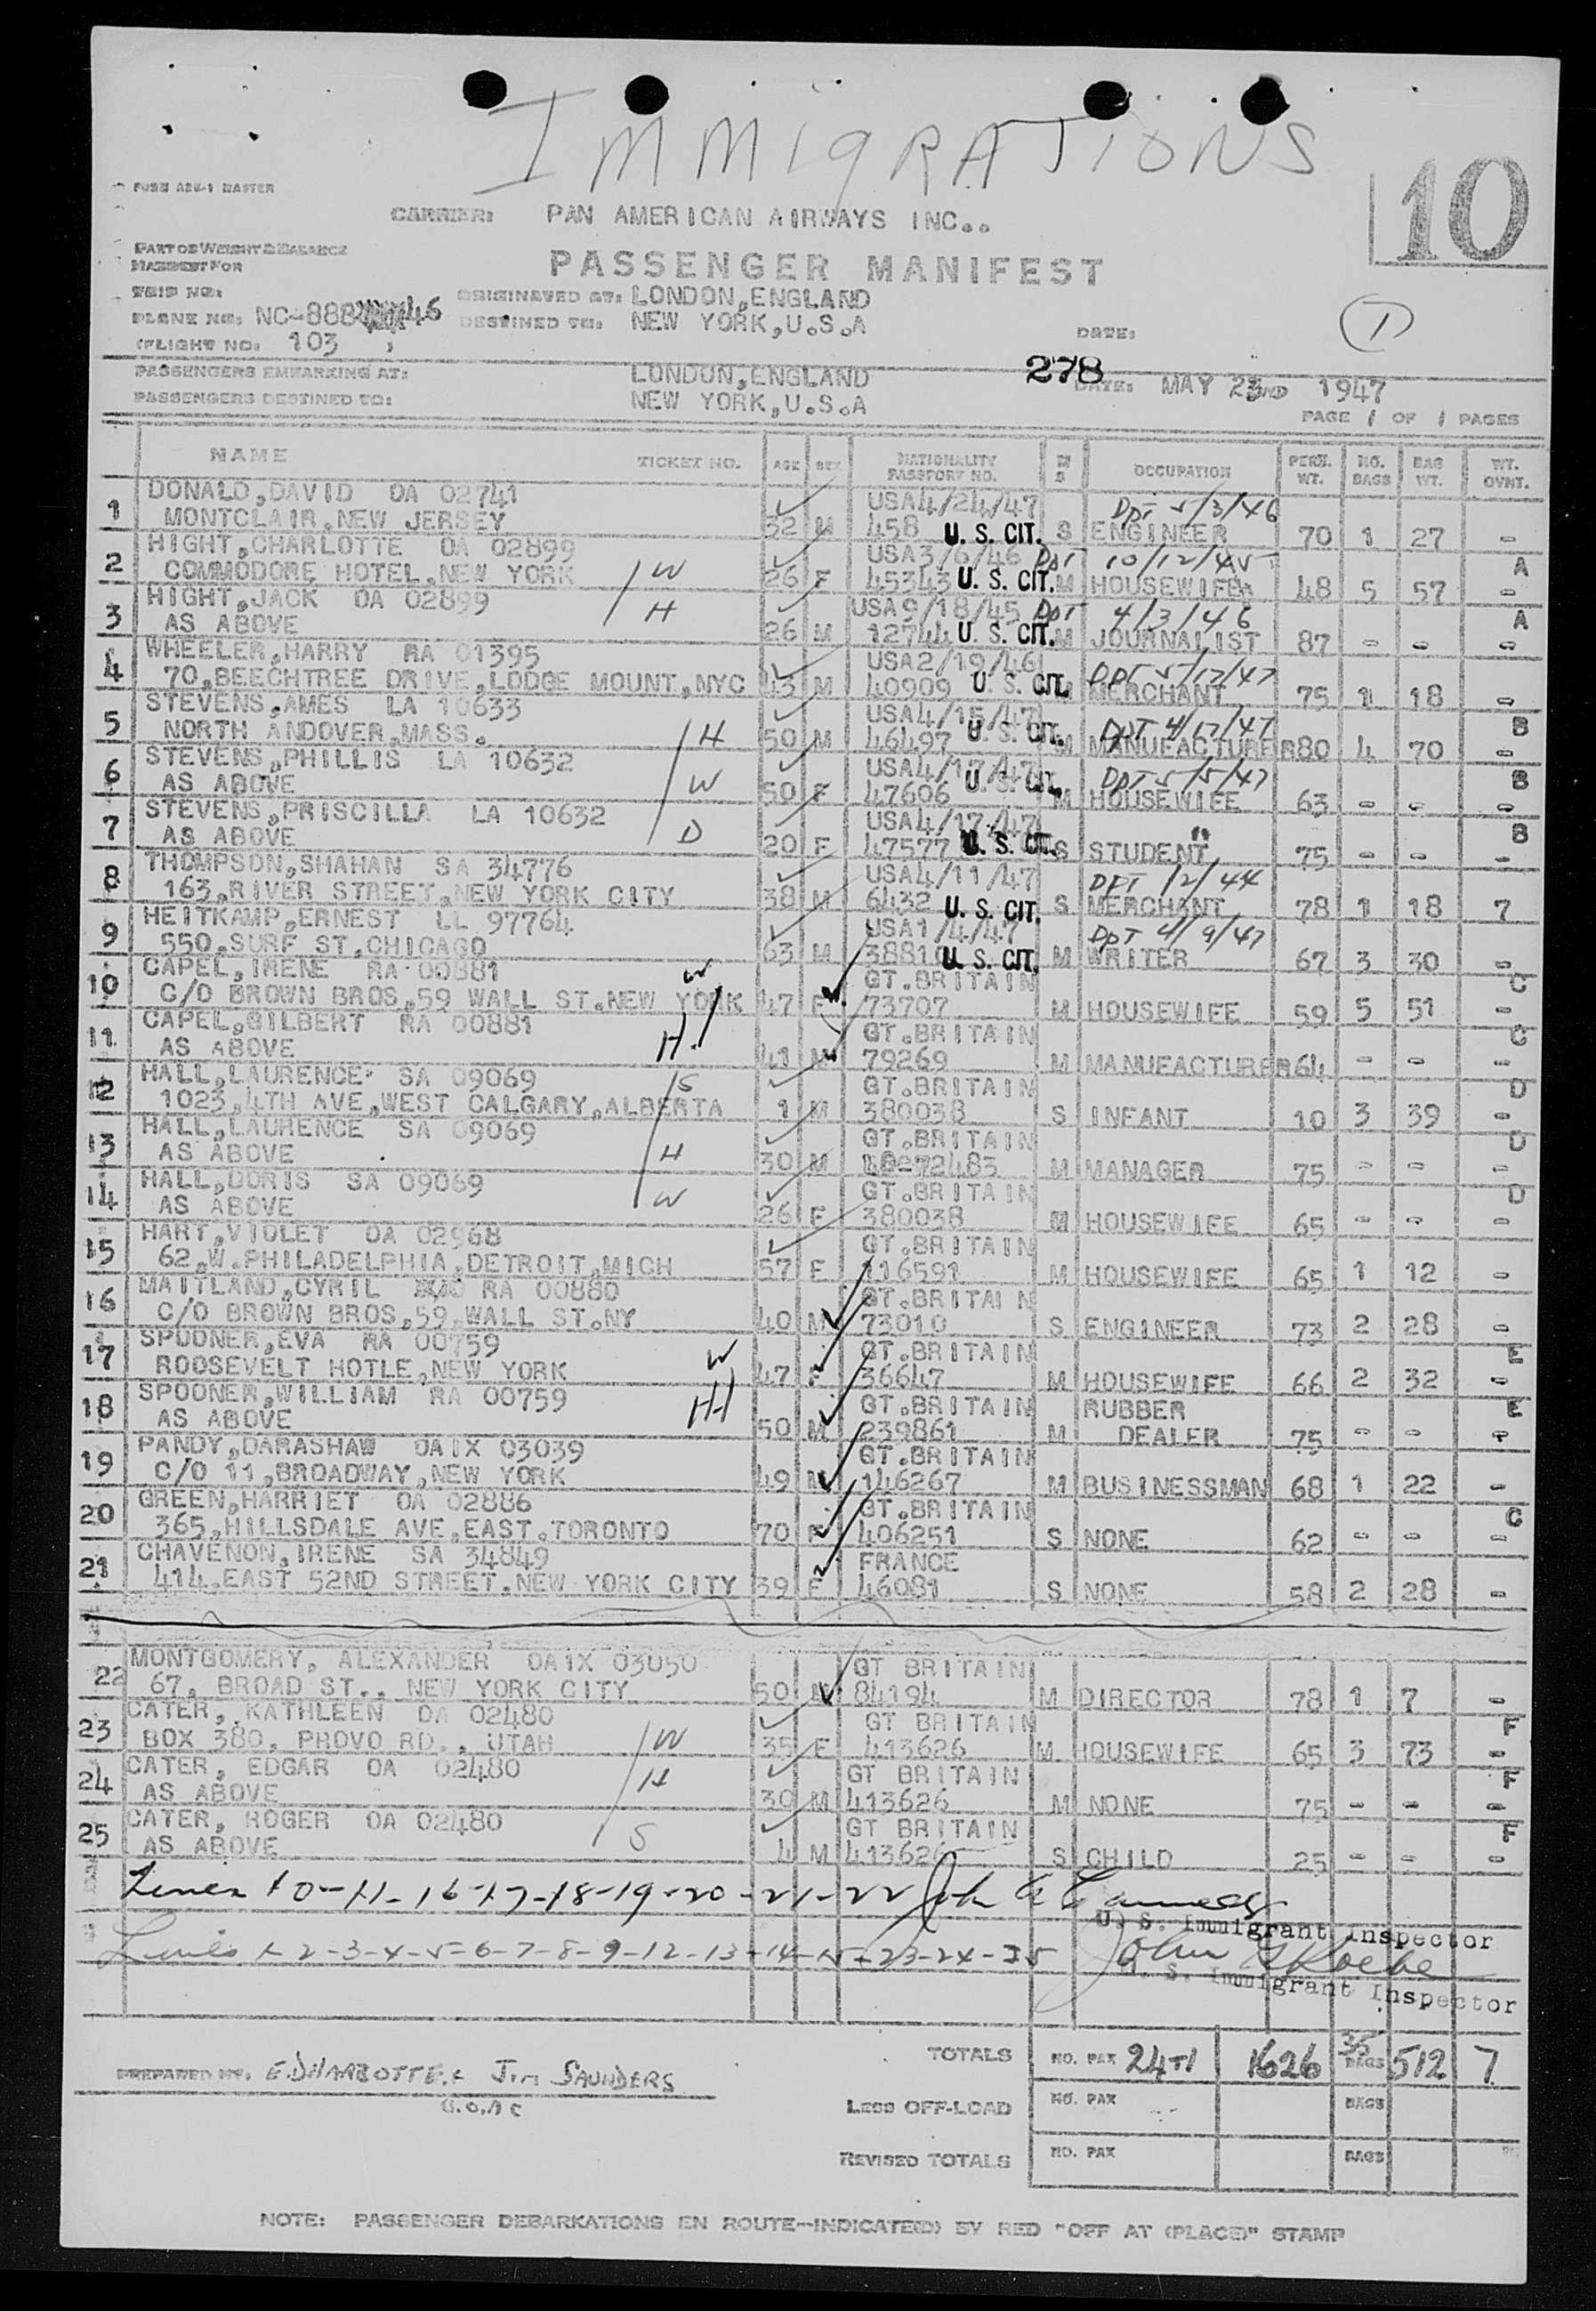 IMMIGRATIONS
FORM A26-1 MASTER
CARRIER: PAN AMERICAN AIRWAYS INC..
10
PART OF WEIGHT & BALANCE
MANIFEST FOR
PASSENGER MANIFEST
TRIP NO:
ORIGINATED AT: LONDON,ENGLAND
PLANE NO: NC-888 46
DESTINED TO: NEW YORK,U.S.A
DATE:
1
(FLIGHT NO: 103 )
278
PASSENGERS EMBARKING AT: LONDON,ENGLAND
DATE: MAY 23 ND 1947
PASSENGERS DESTINED TO: NEW YORK,U.S.A
PAGE 1 OF 1 PAGES
NAME TICKET NO. AGE SEX NATIONALITY PASSPORT NO. M S OCCUPATION PERS. WT. NO. BAGS BAG WT. WT. OVNT.
1 DONALD,DAVID OA 02741 USA4/24/47 DPT 5/3/46
MONTCLAIR,NEW JERSEY 32 M 458 U. S. CIT. S ENGINEER 70 1 27 -
2 HIGHT,CHARLOTTE OA 02899 USA3/6/46 DPT 10/12/45 A
COMMODORE HOTEL,NEW YORK W 26 F 45343 U. S. CIT. M HOUSEWIFE 48 5 57 -
3 HIGHT,JACK OA 02899 H USA9/18/45 DPT 4/3/46 A
AS ABOVE 26 M 12744 U. S. CIT. M JOURNALIST 87 - - -
4 WHEELER,HARRY RA 01395 USA2/19/46 DPT 5/17/47
70,BEECHTREE DRIVE,LODGE MOUNT,NYC 43 M 40909 U. S. CIT. MERCHANT 75 1 18 -
5 STEVENS,AMES LA 10633 USA4/15/47 DPT 4/17/47 B
NORTH ANDOVER,MASS. H 50 M 46497 U. S. CIT. M MANUFACTURER 80 4 70 -
6 STEVENS,PHILLIS LA 10632 USA4/17/47 DPT 5/5/47 B
AS ABOVE W 50 F 47606 U. S. CIT. M HOUSEWIFE 63 - - -
7 STEVENS,PRISCILLA LA 10632 USA4/17/47 " B
AS ABOVE D 20 F 47577 U. S. CIT. S STUDENT 75 - - -
8 THOMPSON,SHAHAN SA 34776 USA4/11/47 DPT 1/2/44
163,RIVER STREET,NEW YORK CITY 38 M 6432 U. S. CIT. S MERCHANT 78 1 18 7
9 HEITKAMP,ERNEST LL 97764 USA1/4/47 DPT 4/9/47
550,SURF ST,CHICAGO 63 M 3881 U. S. CIT. M WRITER 67 3 30 -
10 CAPEL,IRENE RA 00881 W GT.BRITAIN C
C/O BROWN BROS,59 WALL ST.NEW YORK 47 F 73707 M HOUSEWIFE 59 5 51 -
11 CAPEL,GILBERT RA 00881 H GT.BRITAIN C
AS ABOVE 41 M 79269 M MANUFACTURER 64 - - -
12 HALL,LAURENCE SA 09069 S GT.BRITAIN D
1023,4TH AVE,WEST CALGARY,ALBERTA 1 M 380038 S INFANT 10 3 39 -
13 HALL,LAURENCE SA 09069 GT.BRITAIN D
AS ABOVE H 30 M M MANAGER 75 - - -
14 HALL,DORIS SA 09069 GT.BRITAIN D
AS ABOVE W 26 F 380038 M HOUSEWIFE 65 - - -
15 HART,VIOLET OA 02968 GT.BRITAIN
62,W.PHILADELPHIA,DETROIT,MICH 57 F 116591 M HOUSEWIFE 65 1 12 -
16 MAITLAND,CYRIL RA 00880 GT.BRITAIN
C/O BROWN BROS,59,WALL ST.NY 40 M 73010 S ENGINEER 73 2 28 -
17 SPOONER,EVA RA 00759 W GT.BRITAIN E
ROOSEVELT HOTLE,NEW YORK 47 F 36647 M HOUSEWIFE 66 2 32 -
18 SPOONER,WILLIAM RA 00759 H GT.BRITAIN RUBBER E
AS ABOVE 50 M 239861 M DEALER 75 - - -
19 PANDY,DARASHAW OAIX 03039 GT.BRITAIN
C/O 11,BROADWAY,NEW YORK 49 M 146267 M BUSINESSMAN 68 1 22 -
20 GREEN,HARRIET OA 02886 GT.BRITAIN C
365,HILLSDALE AVE,EAST,TORONTO 70 F 406251 S NONE 62 - - -
21 CHAVENON,IRENE SA 34849 FRANCE
414,EAST 52ND STREET.NEW YORK CITY 39 F 46081 S NONE 58 2 28 -
22 MONTGOMERY, ALEXANDER OAIX 03050 GT BRITAIN
67, BROAD ST., NEW YORK CITY 50 M 84194 M DIRECTOR 78 1 7 -
23 CATER, KATHLEEN OA 02480 GT BRITAIN F
BOX 380, PROVO RD., UTAH W 35 F 413626 M HOUSEWIFE 65 3 73 -
24 CATER, EDGAR OA 02480 H GT BRITAIN F
AS ABOVE 30 M 413626 M NONE 75 - - -
25 CATER, ROGER OA 02480 GT BRITAIN F
AS ABOVE S 4 M 413626 S CHILD 25 - - -
Lines 10-11-16-17-18-19-20-21-22 John
U. S. Immigrant Inspector
Lines 1-2-3-4-5-6-7-8-9-12-13-14-15-23-24-25 John
U. S. Immigrant Inspector
TOTALS NO. PAX 24+1 1626 35 BAGS 512 7
PREPARED BY. E.DHARBOTTE.& Jim SAUNDERS
B.O.A C
LESS OFF-LOAD NO. PAX BAGS
REVISED TOTALS NO. PAX BAGS
NOTE: PASSENGER DEBARKATIONS EN ROUTE—INDICATE(D) BY RED "OFF AT (PLACE)" STAMP